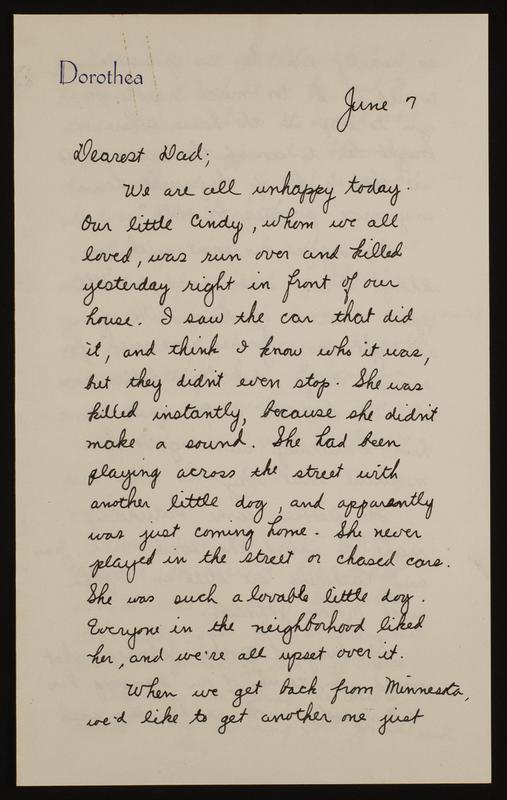 Dorothea
June 7
Dearest Dad;
We are all unhappy today.
Our little Cindy, whom we all
loved, was run over and killed
yesterday right in front of our
house. I saw the car that did
it, and think I know who it was,
but they didn't even stop. She was
killed instantly, because she didn't
make a sound. She had been
playing across the street with
another little dog, and apparently
was just coming home. She never
played in the street or chased cars.
She was such a lovable little dog.
Everyone in the neighborhood liked
her, and we're all upset over it.
When we get back from Minnesota,
we'd like to get another one just